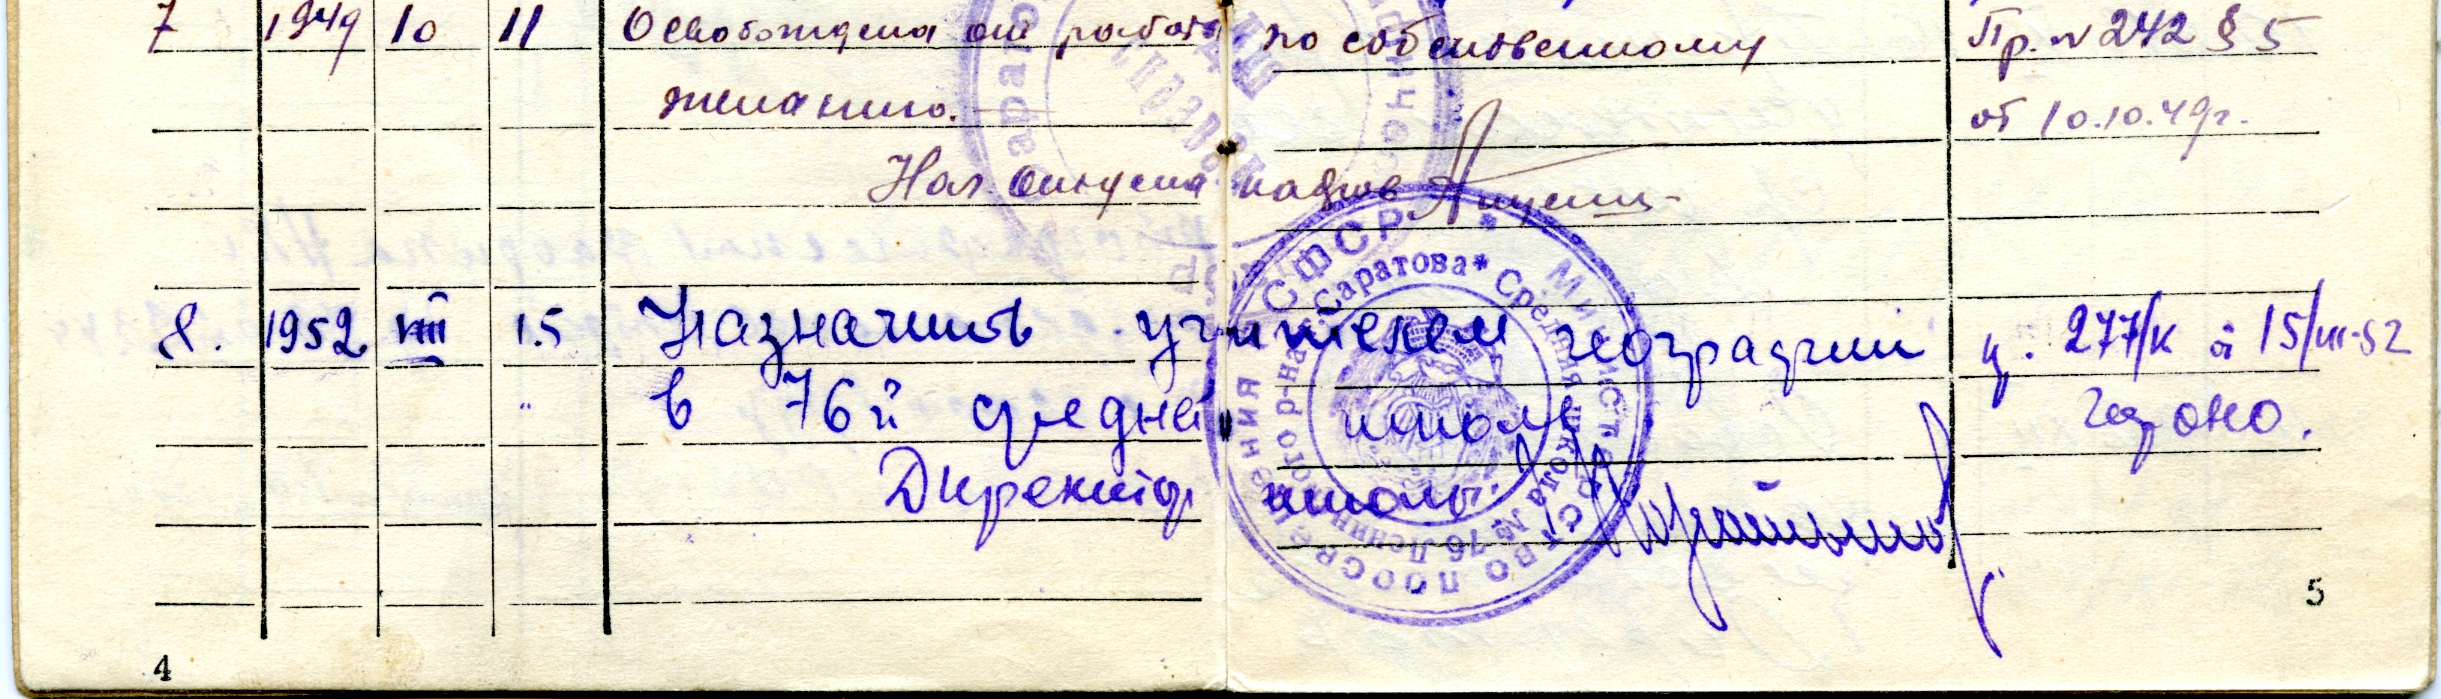 7 1949 10 11 Освобождена от работы по собственному Пр. № 242 § 5
желанию. от 10.10.49г.
Нач. отдела кадров
8. 1952 VIII 15 Назначить учителем географии 277/к 15/VIII-52
в 76й средней школе гороно.
Директор школы
РСФСР * Министерство просвещения
Саратова * Средняя школа № 76 Ленинского р-на
4
5